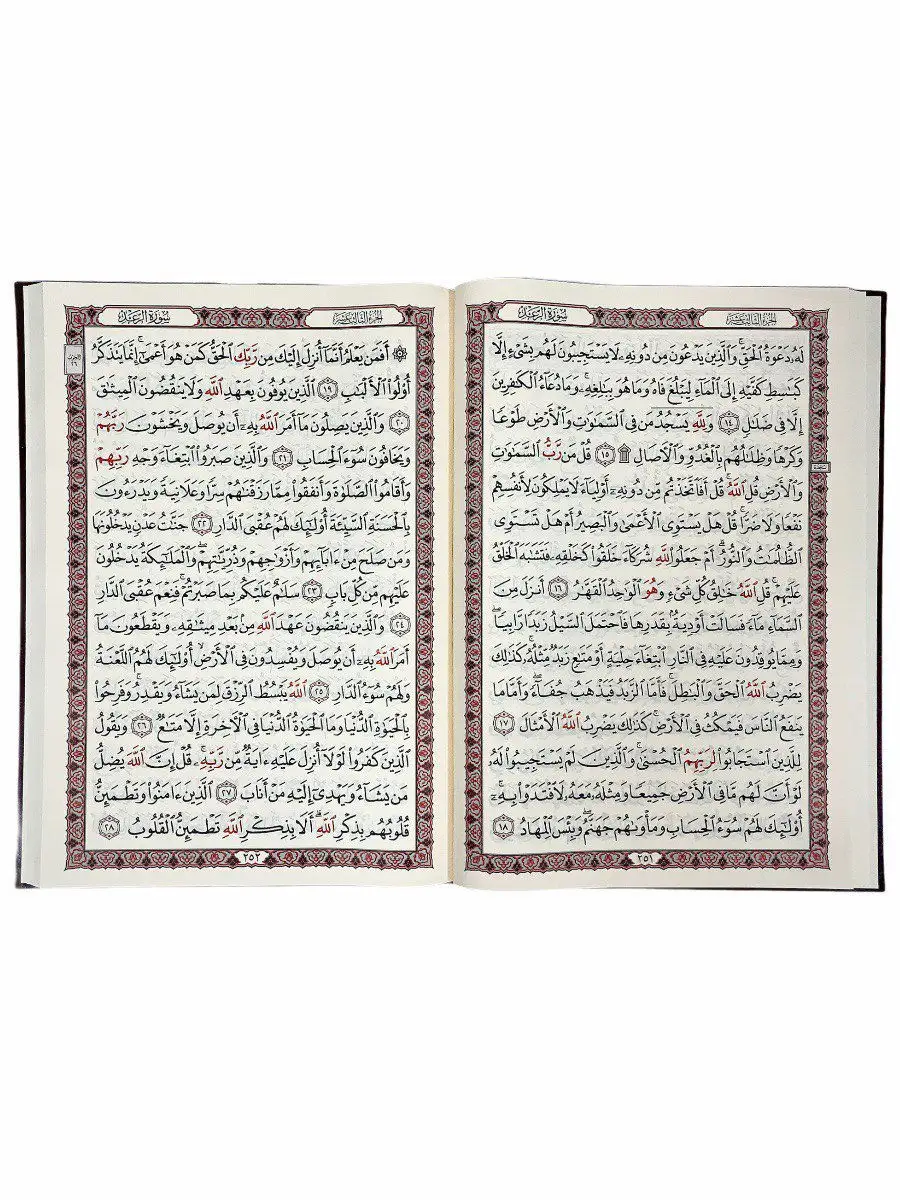 الجزء الثالث عشر
سورة الرعد
لَهُۥ دَعۡوَةُ ٱلۡحَقِّۚ وَٱلَّذِينَ يَدۡعُونَ مِن دُونِهِۦ لَا يَسۡتَجِيبُونَ لَهُم بِشَيۡءٍ إِلَّا
كَبَٰسِطِ كَفَّيۡهِ إِلَى ٱلۡمَآءِ لِيَبۡلُغَ فَاهُ وَمَا هُوَ بِبَٰلِغِهِۦۚ وَمَا دُعَآءُ ٱلۡكَٰفِرِينَ
إِلَّا فِي ضَلَٰلٖ ١٤ وَلِلَّهِۤ يَسۡجُدُۤ مَن فِي ٱلسَّمَٰوَٰتِ وَٱلۡأَرۡضِ طَوۡعٗا
وَكَرۡهٗا وَظِلَٰلُهُم بِٱلۡغُدُوِّ وَٱلۡأٓصَالِ۩ ١٥ قُلۡ مَن رَّبُّ ٱلسَّمَٰوَٰتِ
وَٱلۡأَرۡضِ قُلِ ٱللَّهُۚ قُلۡ أَفَٱتَّخَذۡتُم مِّن دُونِهِۦٓ أَوۡلِيَآءَ لَا يَمۡلِكُونَ لِأَنفُسِهِمۡ
نَفۡعٗا وَلَا ضَرّٗاۚ قُلۡ هَلۡ يَسۡتَوِي ٱلۡأَعۡمَىٰ وَٱلۡبَصِيرُ أَمۡ هَلۡ تَسۡتَوِي
ٱلظُّلُمَٰتُ وَٱلنُّورُۗ أَمۡ جَعَلُواْ لِلَّهِ شُرَكَآءَ خَلَقُواْ كَخَلۡقِهِۦ فَتَشَٰبَهَ ٱلۡخَلۡقُ
عَلَيۡهِمۡۚ قُلِ ٱللَّهُ خَٰلِقُ كُلِّ شَيۡءٖ وَهُوَ ٱلۡوَٰحِدُ ٱلۡقَهَّٰرُ ١٦ أَنزَلَ مِنَ
ٱلسَّمَآءِ مَآءٗ فَسَالَتۡ أَوۡدِيَةُۢ بِقَدَرِهَا فَٱحۡتَمَلَ ٱلسَّيۡلُ زَبَدٗا رَّابِيٗاۖ
وَمِمَّا يُوقِدُونَ عَلَيۡهِ فِي ٱلنَّارِ ٱبۡتِغَآءَ حِلۡيَةٍ أَوۡ مَتَٰعٖ زَبَدٞ مِّثۡلُهُۥۚ كَذَٰلِكَ
يَضۡرِبُ ٱللَّهُ ٱلۡحَقَّ وَٱلۡبَٰطِلَۚ فَأَمَّا ٱلزَّبَدُ فَيَذۡهَبُ جُفَآءٗۖ وَأَمَّا مَا
يَنفَعُ ٱلنَّاسَ فَيَمۡكُثُ فِي ٱلۡأَرۡضِۚ كَذَٰلِكَ يَضۡرِبُ ٱللَّهُ ٱلۡأَمۡثَالَ ١٧
لِلَّذِينَ ٱسۡتَجَابُواْ لِرَبِّهِمُ ٱلۡحُسۡنَىٰۚ وَٱلَّذِينَ لَمۡ يَسۡتَجِيبُواْ لَهُۥ
لَوۡ أَنَّ لَهُم مَّا فِي ٱلۡأَرۡضِ جَمِيعٗا وَمِثۡلَهُۥ مَعَهُۥ لَٱفۡتَدَوۡاْ بِهِۦٓۚ
أُوْلَٰٓئِكَ لَهُمۡ سُوٓءُ ٱلۡحِسَابِ وَمَأۡوَىٰهُمۡ جَهَنَّمُۖ وَبِئۡسَ ٱلۡمِهَادُ ١٨
سجدة
٢٥١
الجزء الثالث عشر
سورة الرعد
۞ أَفَمَن يَعۡلَمُ أَنَّمَآ أُنزِلَ إِلَيۡكَ مِن رَّبِّكَ ٱلۡحَقُّ كَمَنۡ هُوَ أَعۡمَىٰٓۚ إِنَّمَا يَتَذَكَّرُ
أُوْلُواْ ٱلۡأَلۡبَٰبِ ١٩ ٱلَّذِينَ يُوفُونَ بِعَهۡدِ ٱللَّهِ وَلَا يَنقُضُونَ ٱلۡمِيثَٰقَ
٢٠ وَٱلَّذِينَ يَصِلُونَ مَآ أَمَرَ ٱللَّهُ بِهِۦٓ أَن يُوصَلَ وَيَخۡشَوۡنَ رَبَّهُمۡ
وَيَخَافُونَ سُوٓءَ ٱلۡحِسَابِ ٢١ وَٱلَّذِينَ صَبَرُواْ ٱبۡتِغَآءَ وَجۡهِ رَبِّهِمۡ
وَأَقَامُواْ ٱلصَّلَوٰةَ وَأَنفَقُواْ مِمَّا رَزَقۡنَٰهُمۡ سِرّٗا وَعَلَانِيَةٗ وَيَدۡرَءُونَ
بِٱلۡحَسَنَةِ ٱلسَّيِّئَةَ أُوْلَٰٓئِكَ لَهُمۡ عُقۡبَى ٱلدَّارِ ٢٢ جَنَّٰتُ عَدۡنٖ يَدۡخُلُونَهَا
وَمَن صَلَحَ مِنۡ ءَابَآئِهِمۡ وَأَزۡوَٰجِهِمۡ وَذُرِّيَّٰتِهِمۡۖ وَٱلۡمَلَٰٓئِكَةُ يَدۡخُلُونَ
عَلَيۡهِم مِّن كُلِّ بَابٖ ٢٣ سَلَٰمٌ عَلَيۡكُم بِمَا صَبَرۡتُمۡۚ فَنِعۡمَ عُقۡبَى ٱلدَّارِ
٢٤ وَٱلَّذِينَ يَنقُضُونَ عَهۡدَ ٱللَّهِ مِنۢ بَعۡدِ مِيثَٰقِهِۦ وَيَقۡطَعُونَ مَآ
أَمَرَ ٱللَّهُ بِهِۦٓ أَن يُوصَلَ وَيُفۡسِدُونَ فِي ٱلۡأَرۡضِ أُوْلَٰٓئِكَ لَهُمُ ٱللَّعۡنَةُ
وَلَهُمۡ سُوٓءُ ٱلدَّارِ ٢٥ ٱللَّهُ يَبۡسُطُ ٱلرِّزۡقَ لِمَن يَشَآءُ وَيَقۡدِرُۚ وَفَرِحُواْ
بِٱلۡحَيَوٰةِ ٱلدُّنۡيَا وَمَا ٱلۡحَيَوٰةُ ٱلدُّنۡيَا فِي ٱلۡأٓخِرَةِ إِلَّا مَتَٰعٞ ٢٦ وَيَقُولُ
ٱلَّذِينَ كَفَرُواْ لَوۡلَآ أُنزِلَ عَلَيۡهِ ءَايَةٞ مِّن رَّبِّهِۦۚ قُلۡ إِنَّ ٱللَّهَ يُضِلُّ
مَن يَشَآءُ وَيَهۡدِيٓ إِلَيۡهِ مَنۡ أَنَابَ ٢٧ ٱلَّذِينَ ءَامَنُواْ وَتَطۡمَئِنُّ
قُلُوبُهُم بِذِكۡرِ ٱللَّهِۗ أَلَا بِذِكۡرِ ٱللَّهِ تَطۡمَئِنُّ ٱلۡقُلُوبُ ٢٨
الحزب
٢٦
٢٥٢